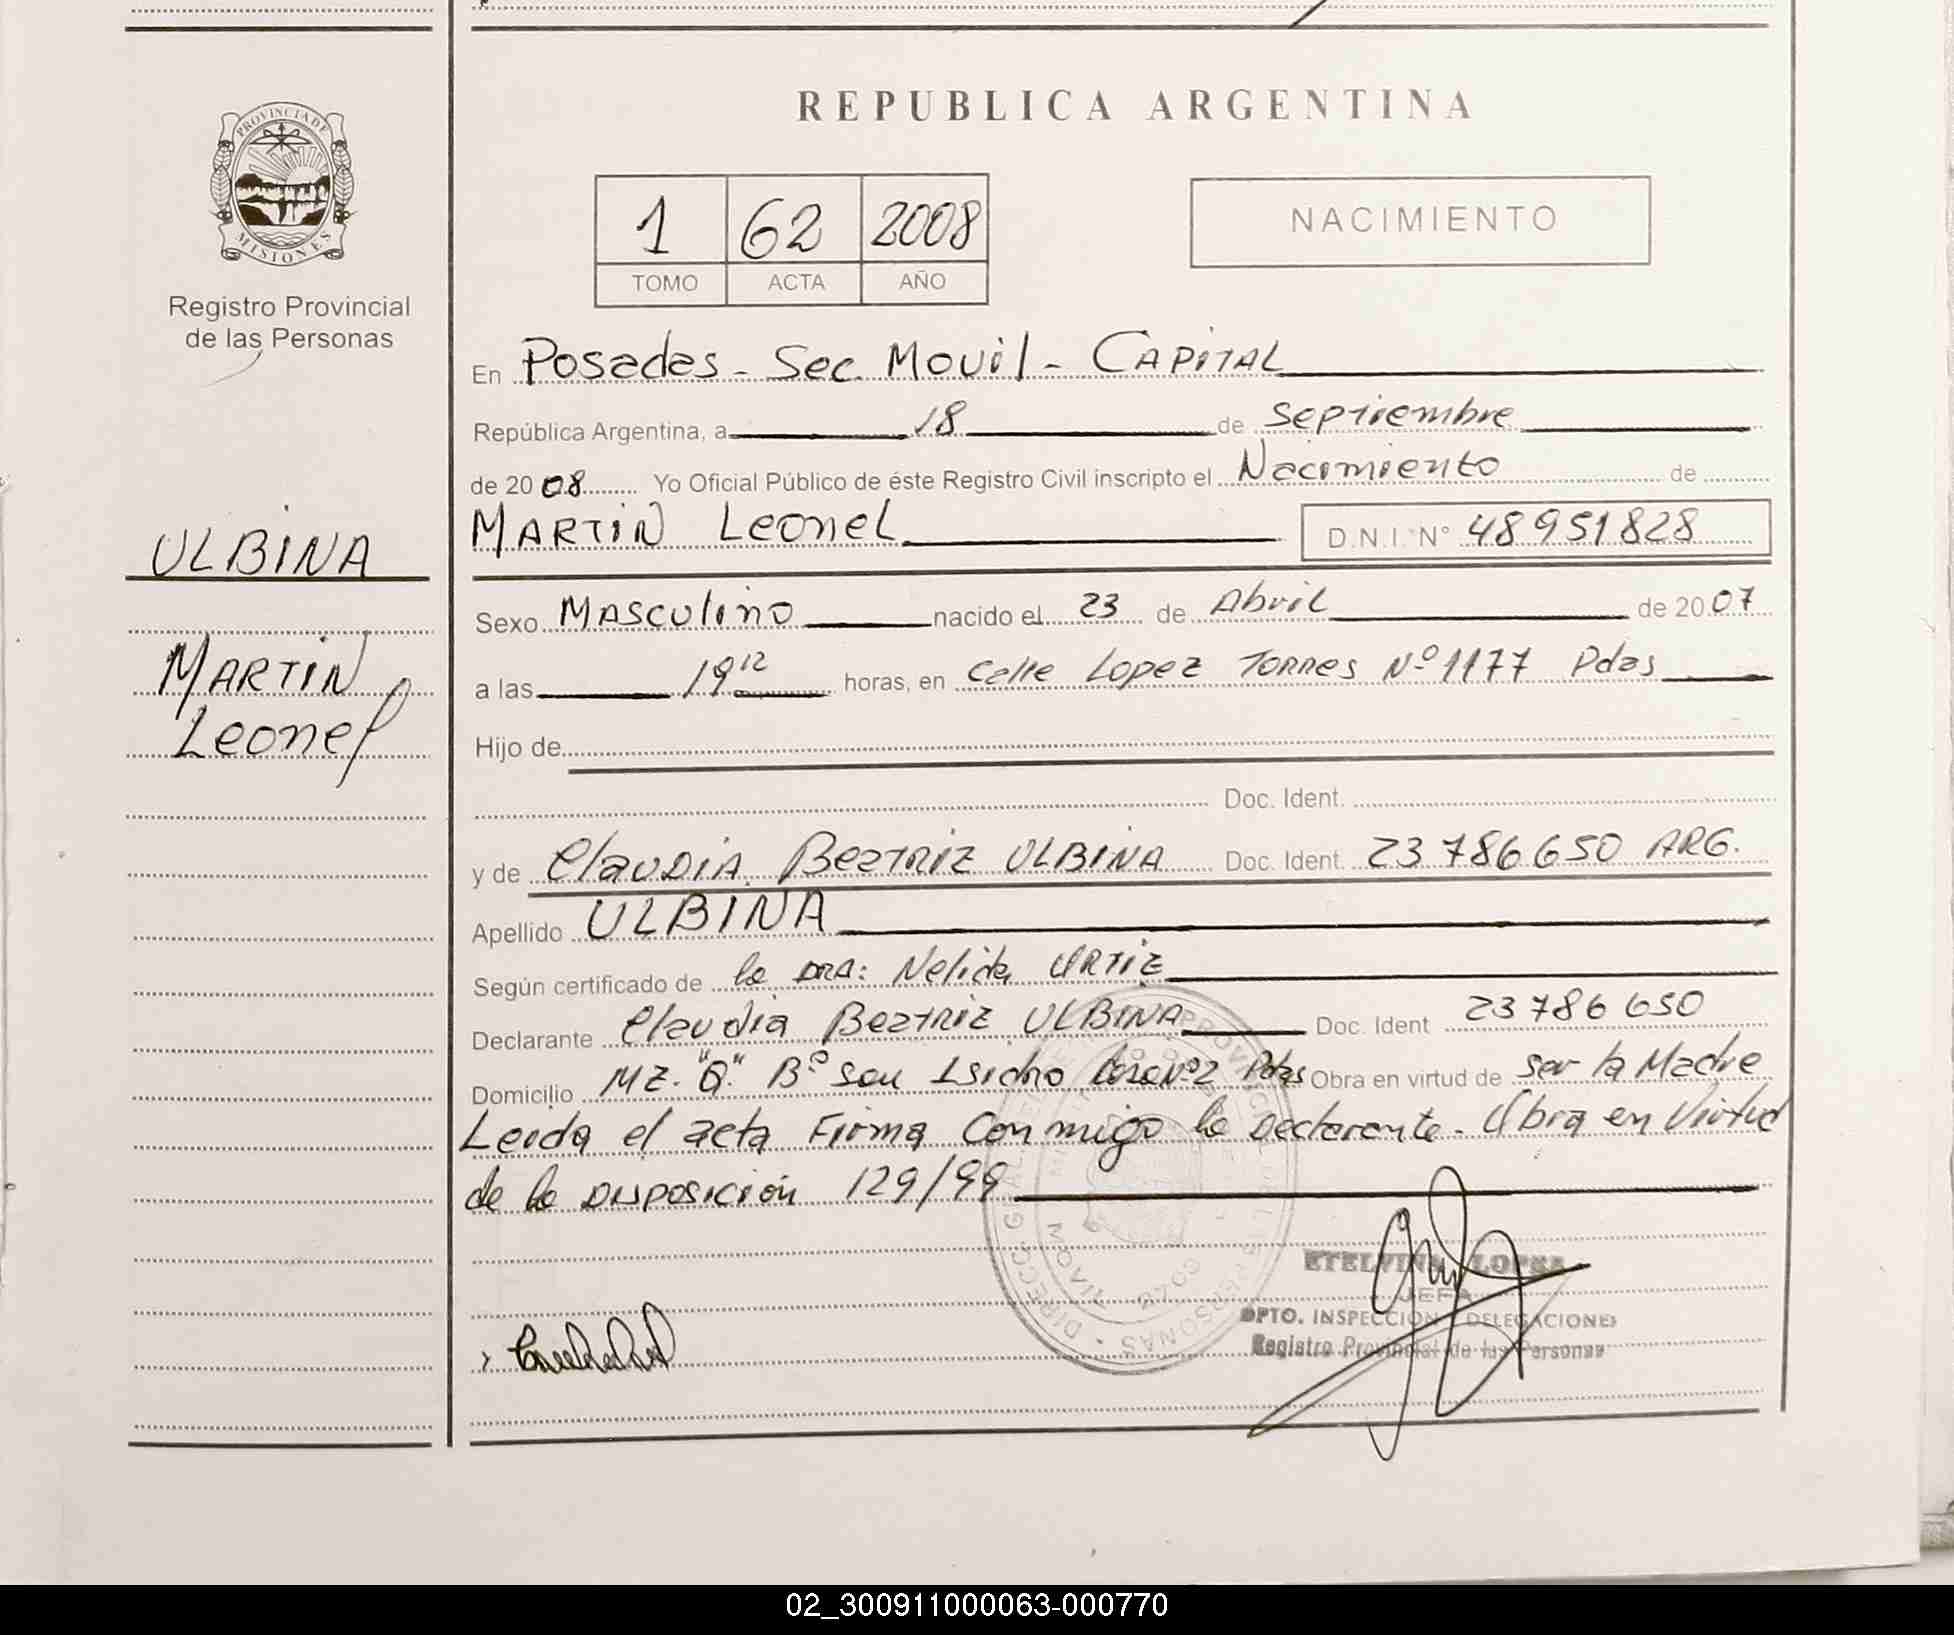 PROVINCIA DE
MISIONES
Registro Provincial
de las Personas
ULBINA
MARTIN
Leonel
REPUBLICA ARGENTINA
1 62 2008
TOMO ACTA AÑO
NACIMIENTO
En Posadas - Sec. Movil - CAPITAL
República Argentina, a 18 de septiembre
de 2008 Yo Oficial Público de éste Registro Civil inscripto el Nacimiento de
MARTIN Leonel D.N.I. N° 48951828
Sexo MASCULINO nacido el 23 de Abril de 2007
a las 19 12 horas, en calle Lopez TORRES Nº 1177 Pdas
Hijo de
Doc. Ident.
y de Claudia Beatriz ULBINA Doc. Ident. 23786650 ARG.
Apellido ULBINA
Según certificado de la DRA: Nelida URTIZ
Declarante Claudia Beatriz ULBINA Doc. Ident 23786650
Domicilio MZ. "Q" Bº San Isidro Casa Nº2 Pdas Obra en virtud de ser la Madre
Leida el acta Firma Conmigo la Declarante - Obra en Virtud
de la Disposición 129/99
ETELVINA LOPEZ
JEFA
DPTO. INSPECCION Y DELEGACIONES
Registro Provincial de las Personas
02_300911000063-000770